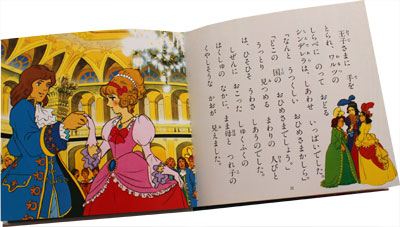 王子さまに 手を
とられ、ワルツの
しらべに のって おどる
シンデレラは、しあわせ いっぱいでした。
「なんと うつくしい おひめさまかしら。」
「どこの 国の おひめさまでしょう。」
うっとり 見つめる まわりの 人びと
は、ひそひそ うわさ しあうのでした。
しぜんに おこった しゅくふくの
はくしゅの なかに、まま母と つれ子の
くやしそうな かおが 見えました。